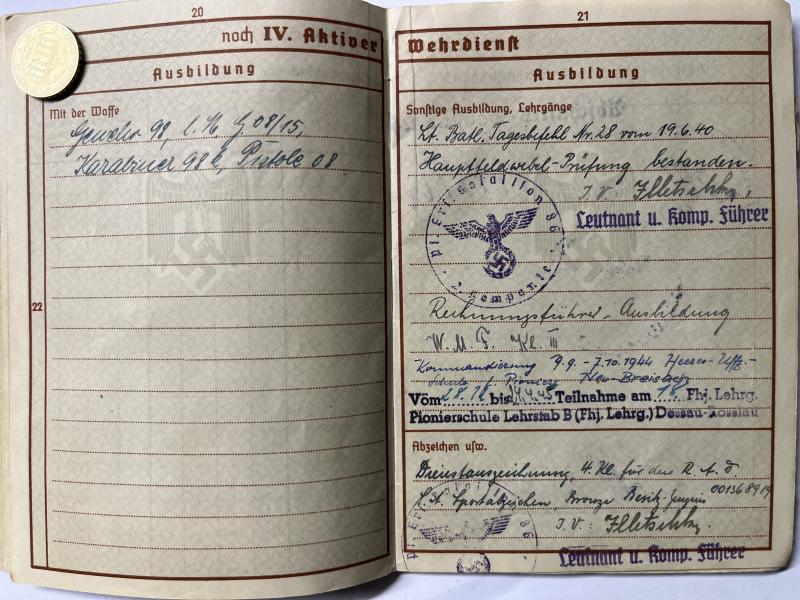 20
noch IV. Aktiver
Ausbildung
Mit der Waffe
Gewehr 98, l. M G 08/15,
Karabiner 98 k, Pistole 08
22
21
Wehrdienst
Ausbildung
Sonstige Ausbildung, Lehrgänge
Lt. Batl. Tagesbefehl Nr. 28 vom 19.6.40
Hauptfeldwebel-Prüfung bestanden.
I.V.:
Leutnant u. Komp. Führer
Pi. Ers. Bataillon 86
2. Kompanie
Rechnungsführer-Ausbildung
W.u.F. Kl. II
Kommandierung 9.9.-7.10.1944 Heeres-Uffz.-
schule f. Pioniere Neu-Breisach
Vom bis 14.4.45 Teilnahme am 18. Fhj. Lehrg.
Pionierschule Lehrstab B (Fhj. Lehrg.) Dessau-Rosslau
Abzeichen usw.
Dienstauszeichnung, 4. Kl. für den R.A.D
S.A. Sportabzeichen, Bronze Besitz-Zeugnis 00136891
I.V.:
Leutnant u. Komp. Führer